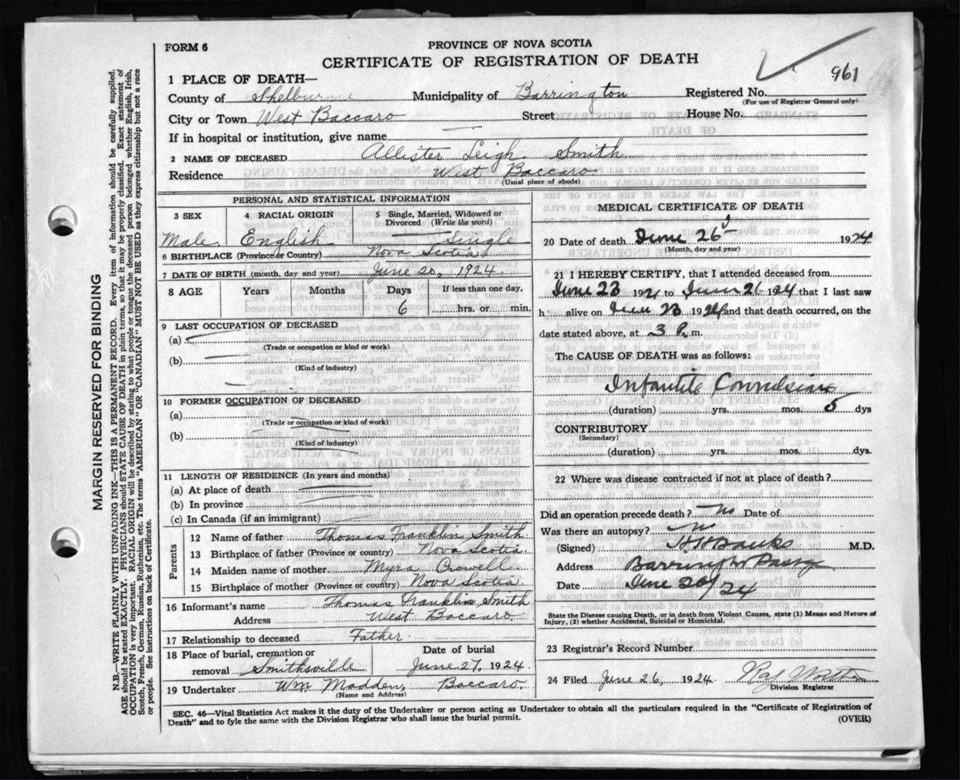 FORM 6
PROVINCE OF NOVA SCOTIA
CERTIFICATE OF REGISTRATION OF DEATH
961
1 PLACE OF DEATH—
County of Shelburne Municipality of Barrington Registered No.
(For use of Registrar General only)
City or Town West Baccaro Street House No.
If in hospital or institution, give name
2 NAME OF DECEASED Allister Leigh Smith
Residence West Baccaro
(Usual place of abode)
MARGIN RESERVED FOR BINDING
N.B.—WRITE PLAINLY WITH UNFADING INK—THIS IS A PERMANENT RECORD. Every item of information should be carefully supplied.
AGE should be stated EXACTLY. PHYSICIANS should STATE CAUSE OF DEATH in plain terms, so that it may be properly classified. Exact statement of
OCCUPATION is very important. RACIAL ORIGIN will be described by stating to what people or tongue the deceased person belonged whether English, Irish,
Scotch, French, German, Russian, Ruthenian, etc. The terms "AMERICAN" OR "CANADIAN" MUST NOT BE USED as they express citizenship but not a race
or people. See instructions on back of Certificate.
PERSONAL AND STATISTICAL INFORMATION
3 SEX 4 RACIAL ORIGIN 5 Single, Married, Widowed or
Divorced (Write the word)
Male English Single
6 BIRTHPLACE (Province or Country) Nova Scotia
7 DATE OF BIRTH (month, day and year) June 20, 1924.
8 AGE Years Months Days If less than one day,
6 hrs. or min.
9 LAST OCCUPATION OF DECEASED
(a)
(Trade or occupation or kind or work)
(b)
(Kind of industry)
10 FORMER OCCUPATION OF DECEASED
(a)
(Trade or occupation or kind of work)
(b)
(Kind of industry)
11 LENGTH OF RESIDENCE (In years and months)
(a) At place of death
(b) In province
(c) In Canada (if an immigrant)
Parents
12 Name of father Thomas Franklin Smith
13 Birthplace of father (Province or country) Nova Scotia
14 Maiden name of mother Myra Crowell
15 Birthplace of mother (Province or country) Nova Scotia
16 Informant's name Thomas Franklin Smith
Address West Baccaro.
17 Relationship to deceased Father
18 Place of burial, cremation or Date of burial
removal Smithsville June 27, 1924.
19 Undertaker Wm Madden, Baccaro.
(Name and Address)
MEDICAL CERTIFICATE OF DEATH
20 Date of death June 26 1924
(Month, day and year)
21 I HEREBY CERTIFY, that I attended deceased from
June 23 1924 to June 26 1924 that I last saw
h alive on June 23 1924 and that death occurred, on the
date stated above, at 3 P. m.
The CAUSE OF DEATH was as follows:
Infantile Convulsion
(duration) yrs. mos. 5 dys
CONTRIBUTORY
(Secondary)
(duration) yrs. mos. dys.
22 Where was disease contracted if not at place of death?
Did an operation precede death? No Date of
Was there an autopsy? No
(Signed) Banks M.D.
Address Barrington Passg
Date June 26/24
State the Disease causing Death, or in death from Violent Causes, state (1) Means and Nature of
Injury, (2) whether Accidental, Suicidal or Homicidal.
23 Registrar's Record Number
24 Filed June 26, 1924.
Division Registrar
SEC. 46—Vital Statistics Act makes it the duty of the Undertaker or person acting as Undertaker to obtain all the particulars required in the "Certificate of Registration of
Death" and to fyle the same with the Division Registrar who shall issue the burial permit.
(OVER)